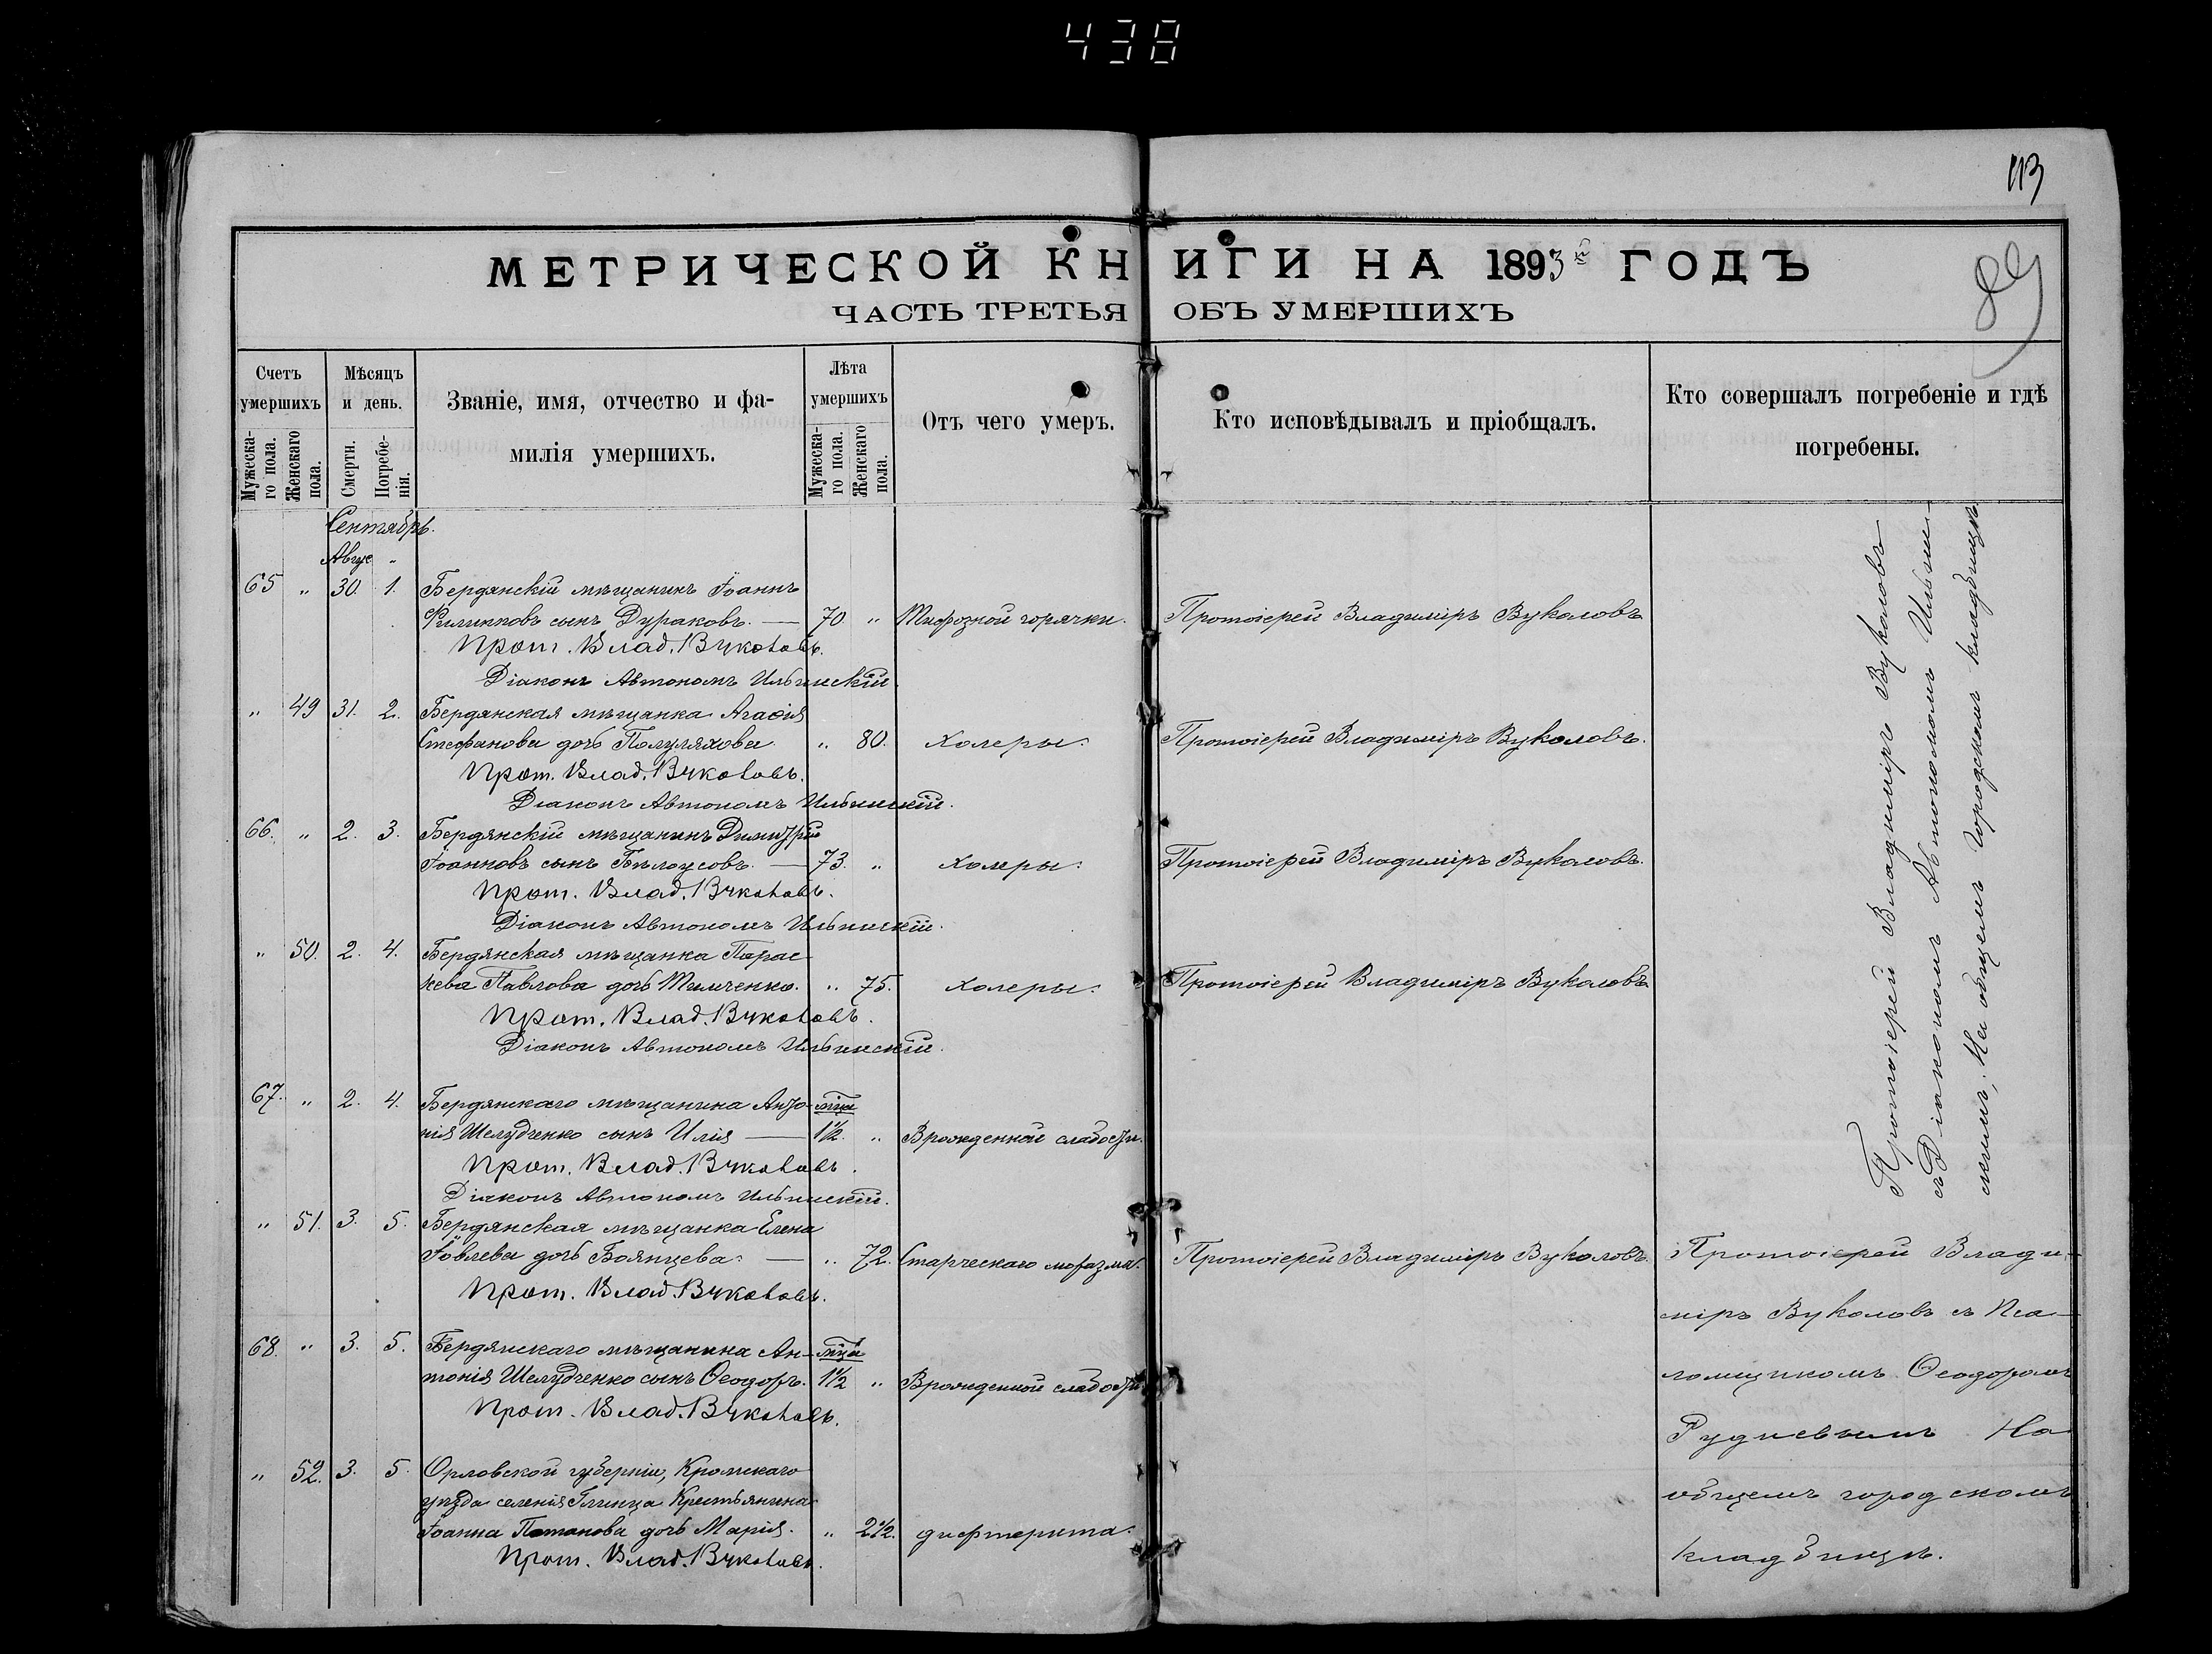 438
113
МЕТРИЧЕСКОЙ КНИГИ НА 1893й ГОДЪ
89
ЧАСТЬ ТРЕТЬЯ ОБЪ УМЕРШИХЪ
Счетъ умершихъ
Мужеска-го пола.
Женскаго пола.
Мѣсяцъ и день.
Смерти.
Погребе-нія.
Званіе, имя, отчество и фа-
милія умершихъ.
Лѣта умершихъ
Мужеска-го пола.
Женскаго пола.
Отъ чего умеръ.
Кто исповѣдывалъ и пріобщалъ.
Кто совершалъ погребеніе и гдѣ
погребены.
Сентябрь.
Авгус „
65 „ 30. 1. Бердянскій мѣщанинъ Іоаннъ
Филипповъ сынъ Дураковъ. — 70 „ Тифозной горячки. Протоіерей Владиміръ Вуколовъ
Прот. Влад. Вуколовъ.
Діаконъ Автономъ Ильинскій.
„ 49 31. 2. Бердянская мѣщанка Агаѳія
Стефанова дочь Полуляхова „ 80. Холеры. Протоіерей Владиміръ Вуколовъ.
Прот. Влад. Вуколовъ.
Діаконъ Автономъ Ильинскій.
66. „ 2. 3. Бердянскій мѣщанинъ Димитрій
Іоанновъ сынъ Бѣлоусовъ. — 73. „ Холеры. Протоіерей Владиміръ Вуколовъ.
Прот. Влад. Вуколовъ.
Діаконъ Автономъ Ильинскій.
„ 50. 2. 4. Бердянская мѣщанка Парас-
кева Павлова дочь Тимченко. „ 75. Холеры. Протоіерей Владиміръ Вуколовъ
Прот. Влад. Вуколовъ.
Діаконъ Автономъ Ильинскій.
67. „ 2. 4. Бердянскаго мѣщанина Анто- мца
нія Шелудченко сынъ Илія — 1½. „ Врожденной слабости.
Прот. Влад. Вуколовъ.
Діаконъ Автономъ Ильинскій.
Протоіерей Владиміръ Вуколовъ
съ Діакономъ Автономомъ Ильин-
скимъ; На общемъ городскомъ кладбищѣ
„ 51. 3. 5. Бердянская мѣщанка Елена
Іовлева дочь Боянцева. — „ 72. Старческаго моразма. Протоіерей Владиміръ Вуколовъ.
Прот. Влад. Вуколовъ.
68. „ 3. 5. Бердянскаго мѣщанина Ан- мца
тонія Шелудченко сынъ Ѳеодоръ. 1½ „ Врожденной слабости
Прот. Влад. Вуколовъ.
„ 52. 3. 5. Орловской губерніи, Кромскаго
уѣзда селенія Глинца Крестьянина
Іоанна Потапова дочь Марія. „ 2½. дифтерита.
Прот. Влад. Вуколовъ.
Протоіерей Влади-
міръ Вуколовъ съ Пса-
ломщикомъ Ѳеодоромъ
Рудневымъ На
общемъ городскомъ
кладбищѣ.